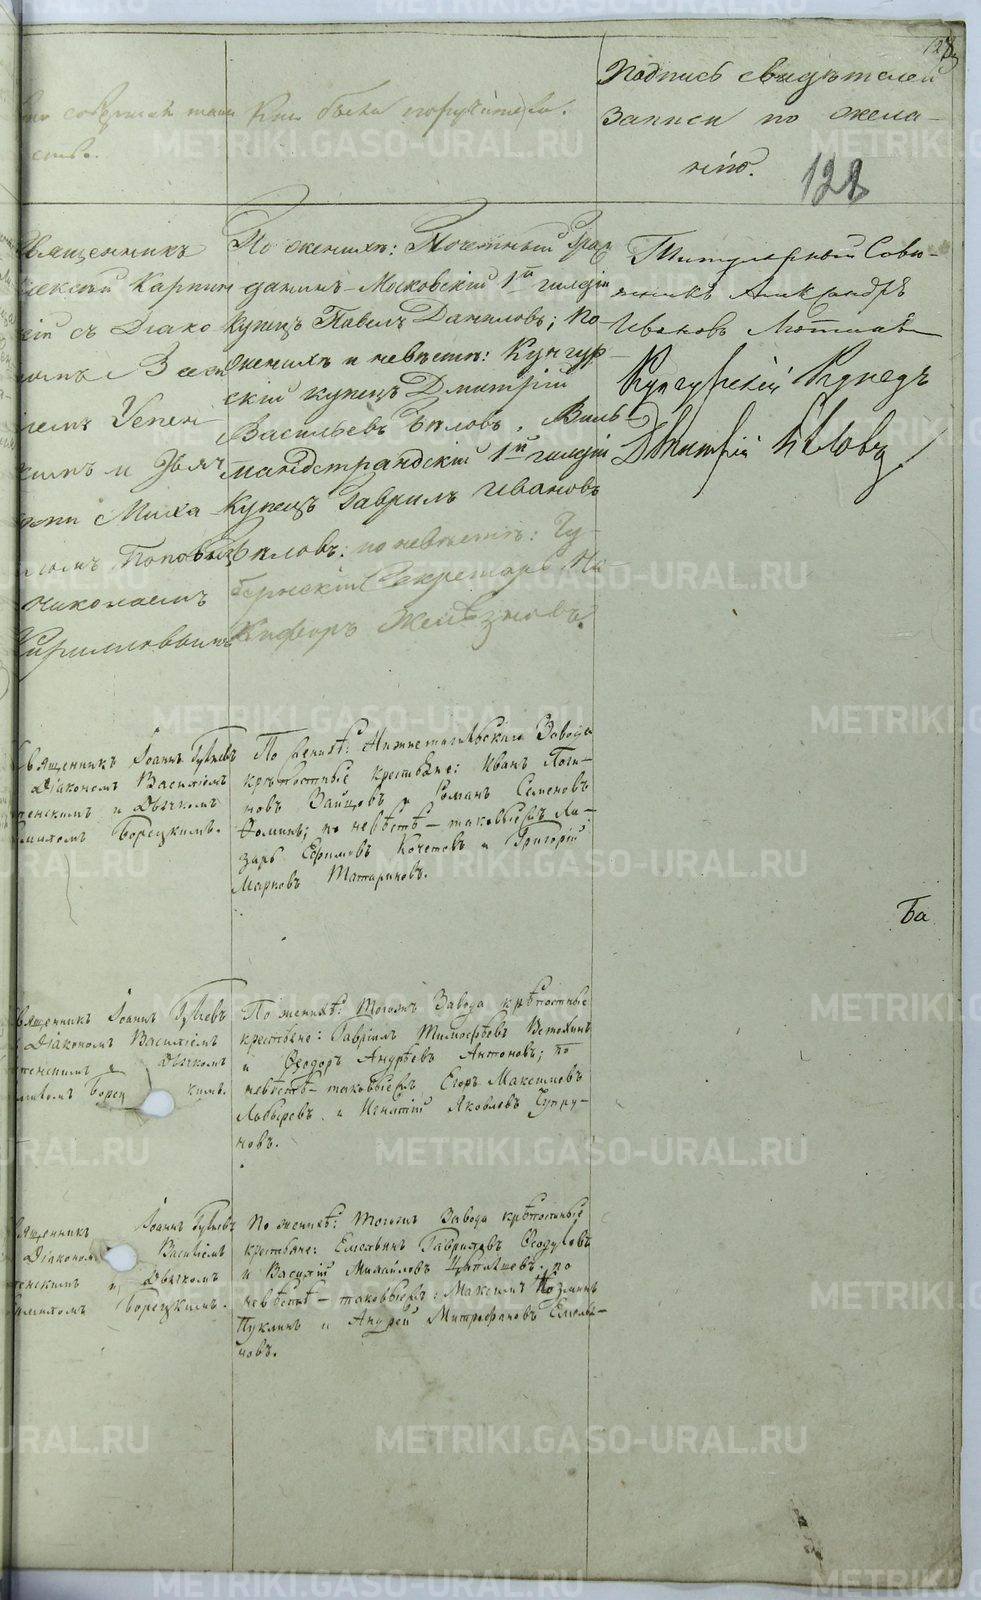 128
Кто совершалъ таин
ство.
Кто были поручители.
Подпись свидѣтелей
записи по жела-
нію.
128
Священникъ
Алексій Карпин
скій съ Діако
номъ
Успен
скимъ и Дьяч
ками Миха
иломъ Поповымъ
Николаемъ
Кирилловымъ
По женихѣ: Почетный Граж
данинъ Московскій 1й гилдіи
купецъ Павелъ Даниловъ; по
женихѣ и невѣстѣ: Кунгур-
скій купецъ Дмитрій
Васильевъ Бѣловъ, Виль-
манстрандскій 1й гилдіи
Купецъ Гаврилъ Ивановъ
Бѣловъ: по невѣстѣ: Гу-
бернскій Секретарь Ни-
кифоръ Желѣзновъ.
Титулярный Совѣ-
тникъ Александръ
Ивановъ
Кунгурскій Купецъ
Дмитрій Бѣловъ
Священникъ Іоаннъ Губевъ
Діакономъ Василіемъ
Успенскимъ и Дьячкомъ
Борецкимъ.
По женихѣ: Нижнетагильскаго Завода
крѣпостные крестьяне: Иванъ Логи-
новъ Зайцовъ и Романъ Семеновъ
Ѳоминъ; по невѣстѣ – таковыежъ Ла-
зарь Ефимовъ Кочетовъ и Григорій
Марковъ Татариновъ.
Ба
Священникъ Іоаннъ Губевъ
Діакономъ Василіемъ
Успенскимъ и Дьячкомъ
Борецкимъ.
По женихѣ: тогожъ Завода крѣпостные
крестьяне: Гавріилъ Тимофѣевъ Ветошинъ
и Ѳеодоръ Андрѣевъ Антоновъ; по
невѣстѣ – таковыежъ Егоръ Максимовъ
и Игнатій Яковлевъ Чупру-
новъ.
Священникъ Іоаннъ Губевъ
Діакономъ Василіемъ
Успенскимъ и Дьячкомъ
Борецкимъ.
По женихѣ: тогожъ Завода крѣпостные
крестьяне: Емельянъ Гавриловъ Ѳедуловъ
и Василій Михайловъ по
невѣстѣ – таковыежъ: Максимъ Козминъ
Пуклинъ и Андрей Митрофановъ Емелья-
новъ.
METRIKI.GASO-URAL.RU